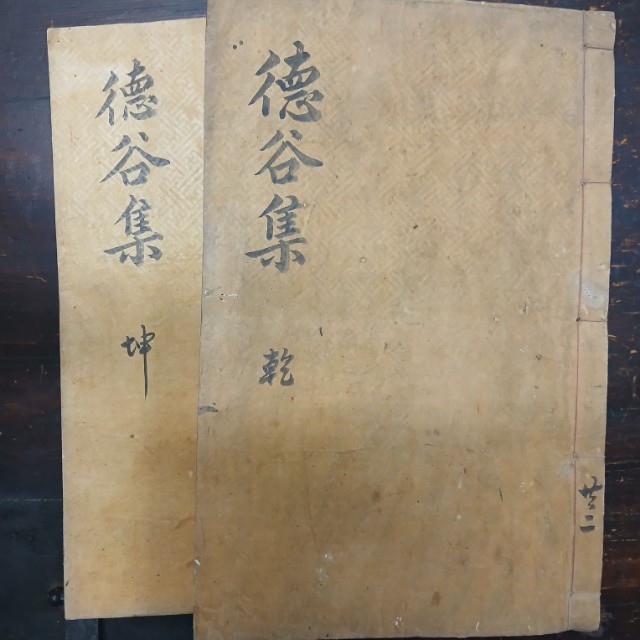 德谷集
乾
共二
德谷集
坤